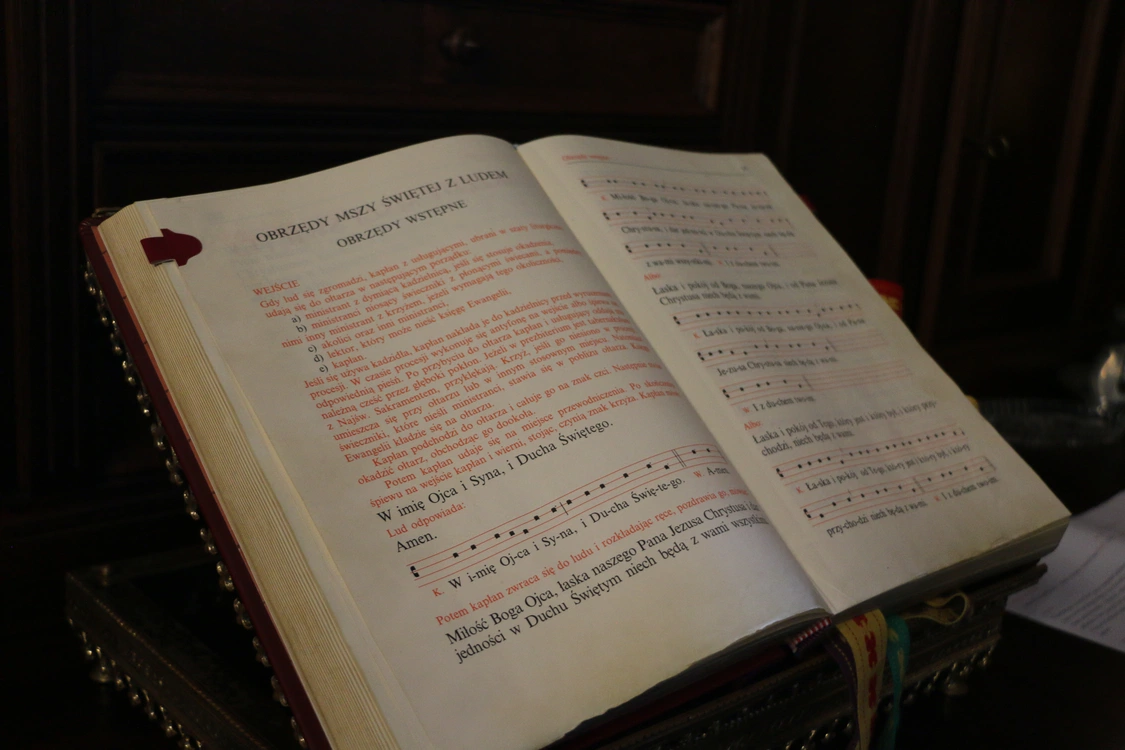 OBRZĘDY MSZY ŚWIĘTEJ Z LUDEM
OBRZĘDY WSTĘPNE
WEJŚCIE
Gdy lud się zgromadzi, kapłan z usługującymi, ubrani w szaty liturgiczne,
udają się do ołtarza w następującym porządku:
a) ministrant z dymiącą kadzielnicą, jeśli się stosuje okadzenie,
b) ministranci niosący świeczniki z płonącymi świecami, a pomiędzy
nimi inny ministrant z krzyżem, jeżeli wymagają tego okoliczności,
c) akolici oraz inni ministranci,
d) lektor, który może nieść księgę Ewangelii,
e) kapłan.
Jeśli się używa kadzidła, kapłan nakłada je do kadzielnicy przed
procesji. W czasie procesji wykonuje się antyfonę na wejście albo śpiewa
odpowiednią pieśń. Po przybyciu do ołtarza kapłan i usługujący oddają
należną cześć przez głęboki pokłon. Jeżeli w prezbiterium jest
z Najśw. Sakramentem, przyklękają. Krzyż, jeśli go niesiono w procesji,
umieszcza się przy ołtarzu lub w innym stosownym miejscu.
świeczniki, które nieśli ministranci, stawia się w pobliżu ołtarza.
Ewangelii kładzie się na ołtarzu.
Kapłan podchodzi do ołtarza i całuje go na znak czci. Następnie
okadzić ołtarz, obchodząc go dookoła.
Potem kapłan udaje się na miejsce przewodniczenia. Po skończeniu
śpiewu na wejście kapłan i wierni, stojąc, czynią znak krzyża. Kapłan
W imię Ojca i Syna, i Ducha Świętego.
Lud odpowiada:
Amen.
K. W i-mię Oj-ca i Sy-na, i Du-cha Świę-te-go. W. A-men.
Potem kapłan zwraca się do ludu i rozkładając ręce, pozdrawia go,
Miłość Boga Ojca, łaska naszego Pana Jezusa Chrystusa i dar
jedności w Duchu Świętym niech będą z wami wszystkimi.
Obrzędy wstępne
K. Miłość Boga Ojca, łaska naszego Pana Jezusa
z wa-mi wszyst-ki-mi. W. I z du-chem two-im.
Albo:
Łaska i pokój od Boga, naszego Ojca, i od Pana Jezusa
Chrystusa niech będą z wami.
K. Ła-ska i po-kój od Bo-ga, na-sze-go Oj-ca, i od Pa-na
Je-zu-sa Chry-stu-sa niech bę-dą z wa-mi.
W. I z du-chem two-im.
Albo:
Łaska i pokój od Tego, który jest i który był, i który przy-
chodzi, niech będą z wami.
K. Ła-ska i po-kój od Te-go, któ-ry jest i któ-ry był, i któ-ry
przy-cho-dzi niech bę-dą z wa-mi. W. I z du-chem two-im.